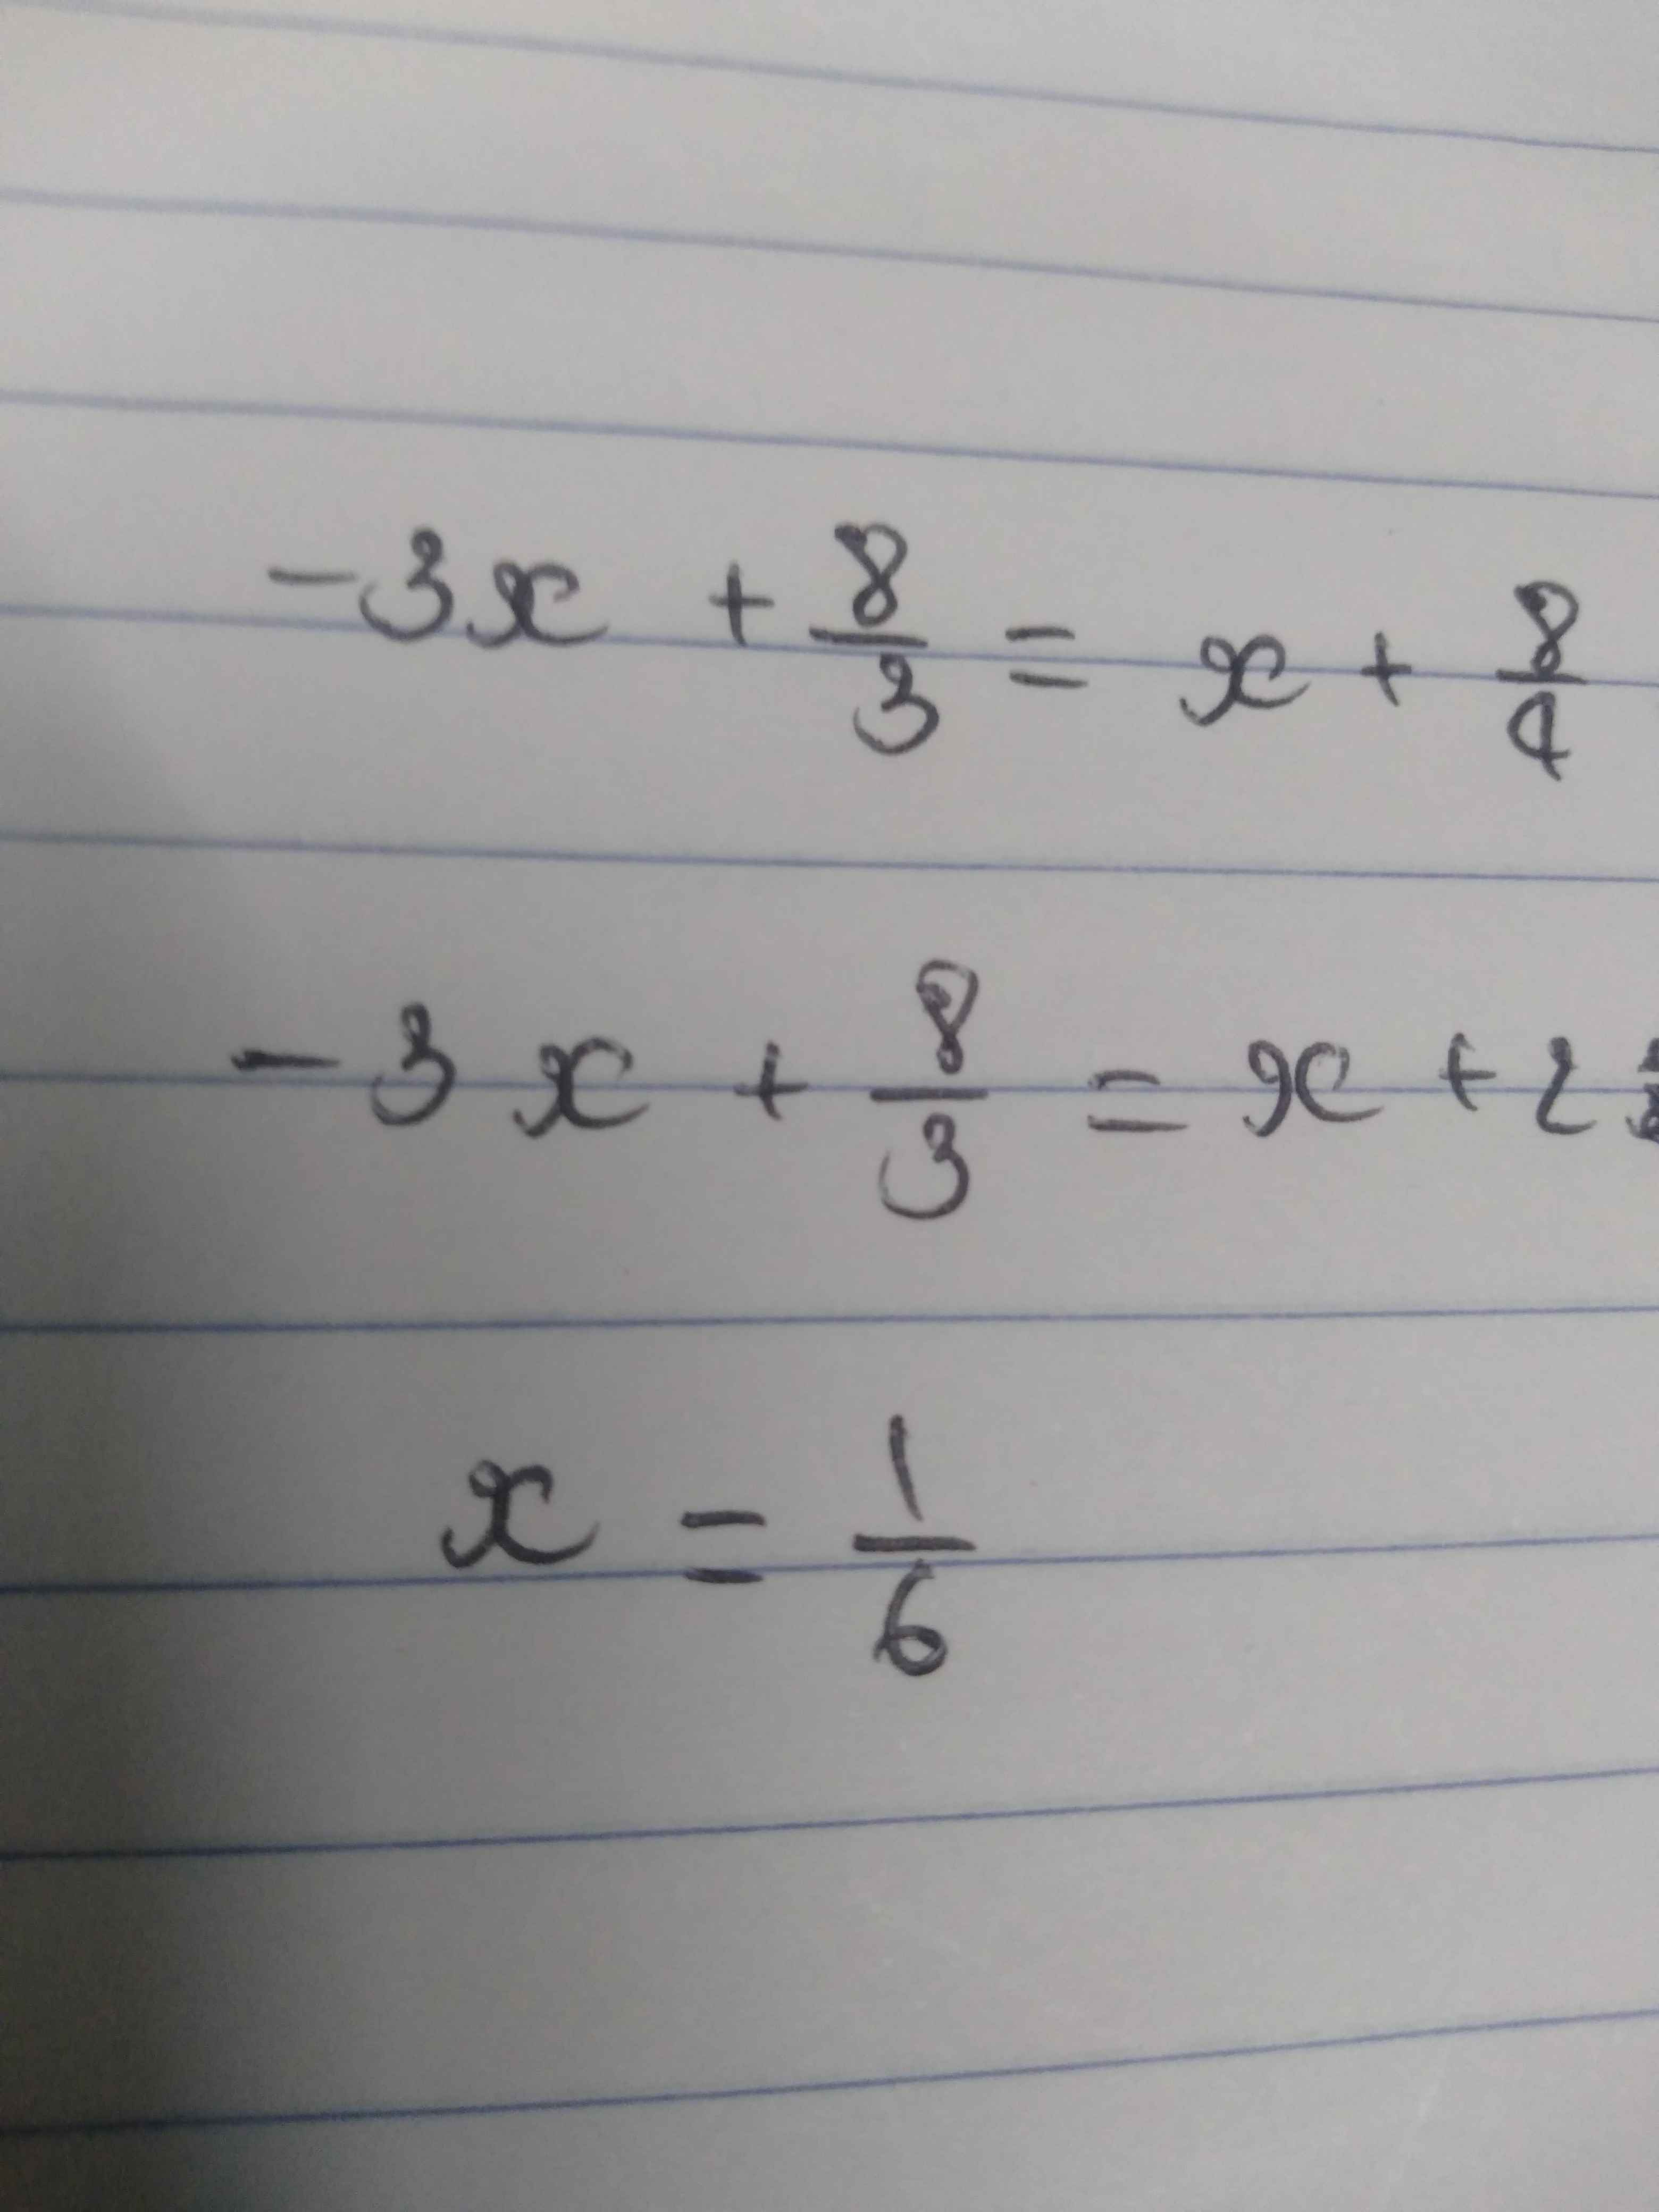 -3x + 8/3 = x + 8/4
-3x + 8/3 = x + 2
x = 1/6